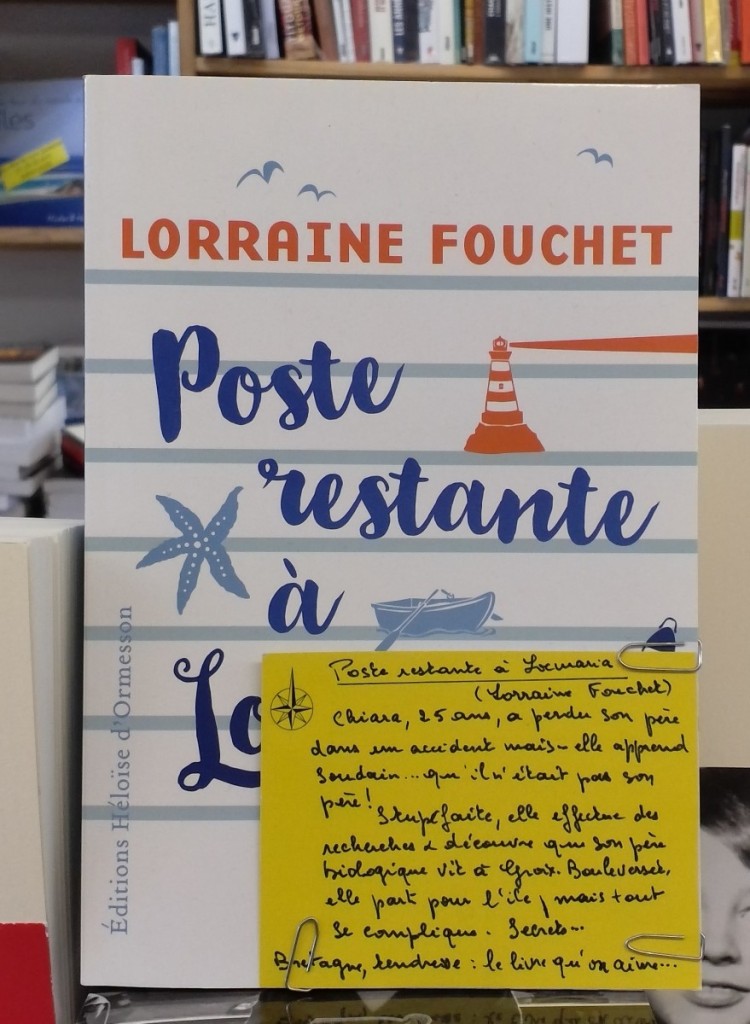 LORRAINE FOUCHET
Poste
restante
à
Lo
Éditions Héloïse d'Ormesson
Poste restante à Locmaria
(Lorraine Fouchet)
Chiara, 25 ans, a perdu son père
dans un accident mais - elle apprend
soudain... qu'il n'était pas son
père!
Stupéfaite, elle effectue des
recherches & découvre que son père
biologique vit à Groix. Bouleversée,
elle part pour l'île, mais tout
se complique. Secrets...
Bretagne, tendresse : le livre qu'on aime...